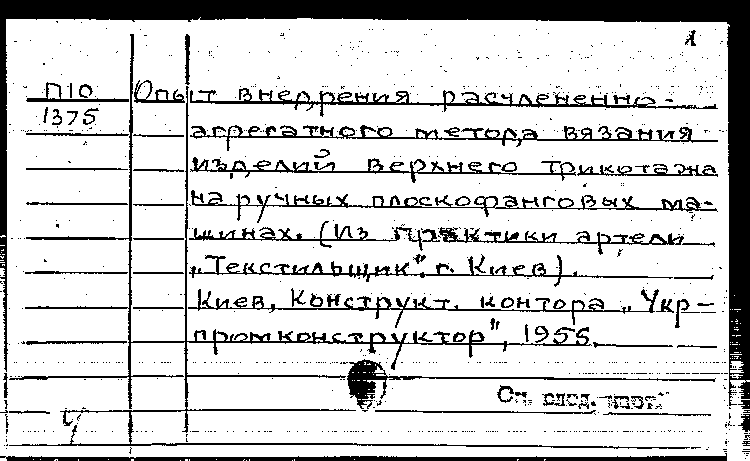 1
П10 Опыт внедрения расчлененно-
1375
агрегатного метода вязания
изделий верхнего трикотажа
на ручных плоскофанговых ма-
шинах. (Из практики артели
„Текстильщик". г. Киев).
Киев, Конструкт. контора „Укр-
промконструктор", 1955.
См. след. карт.